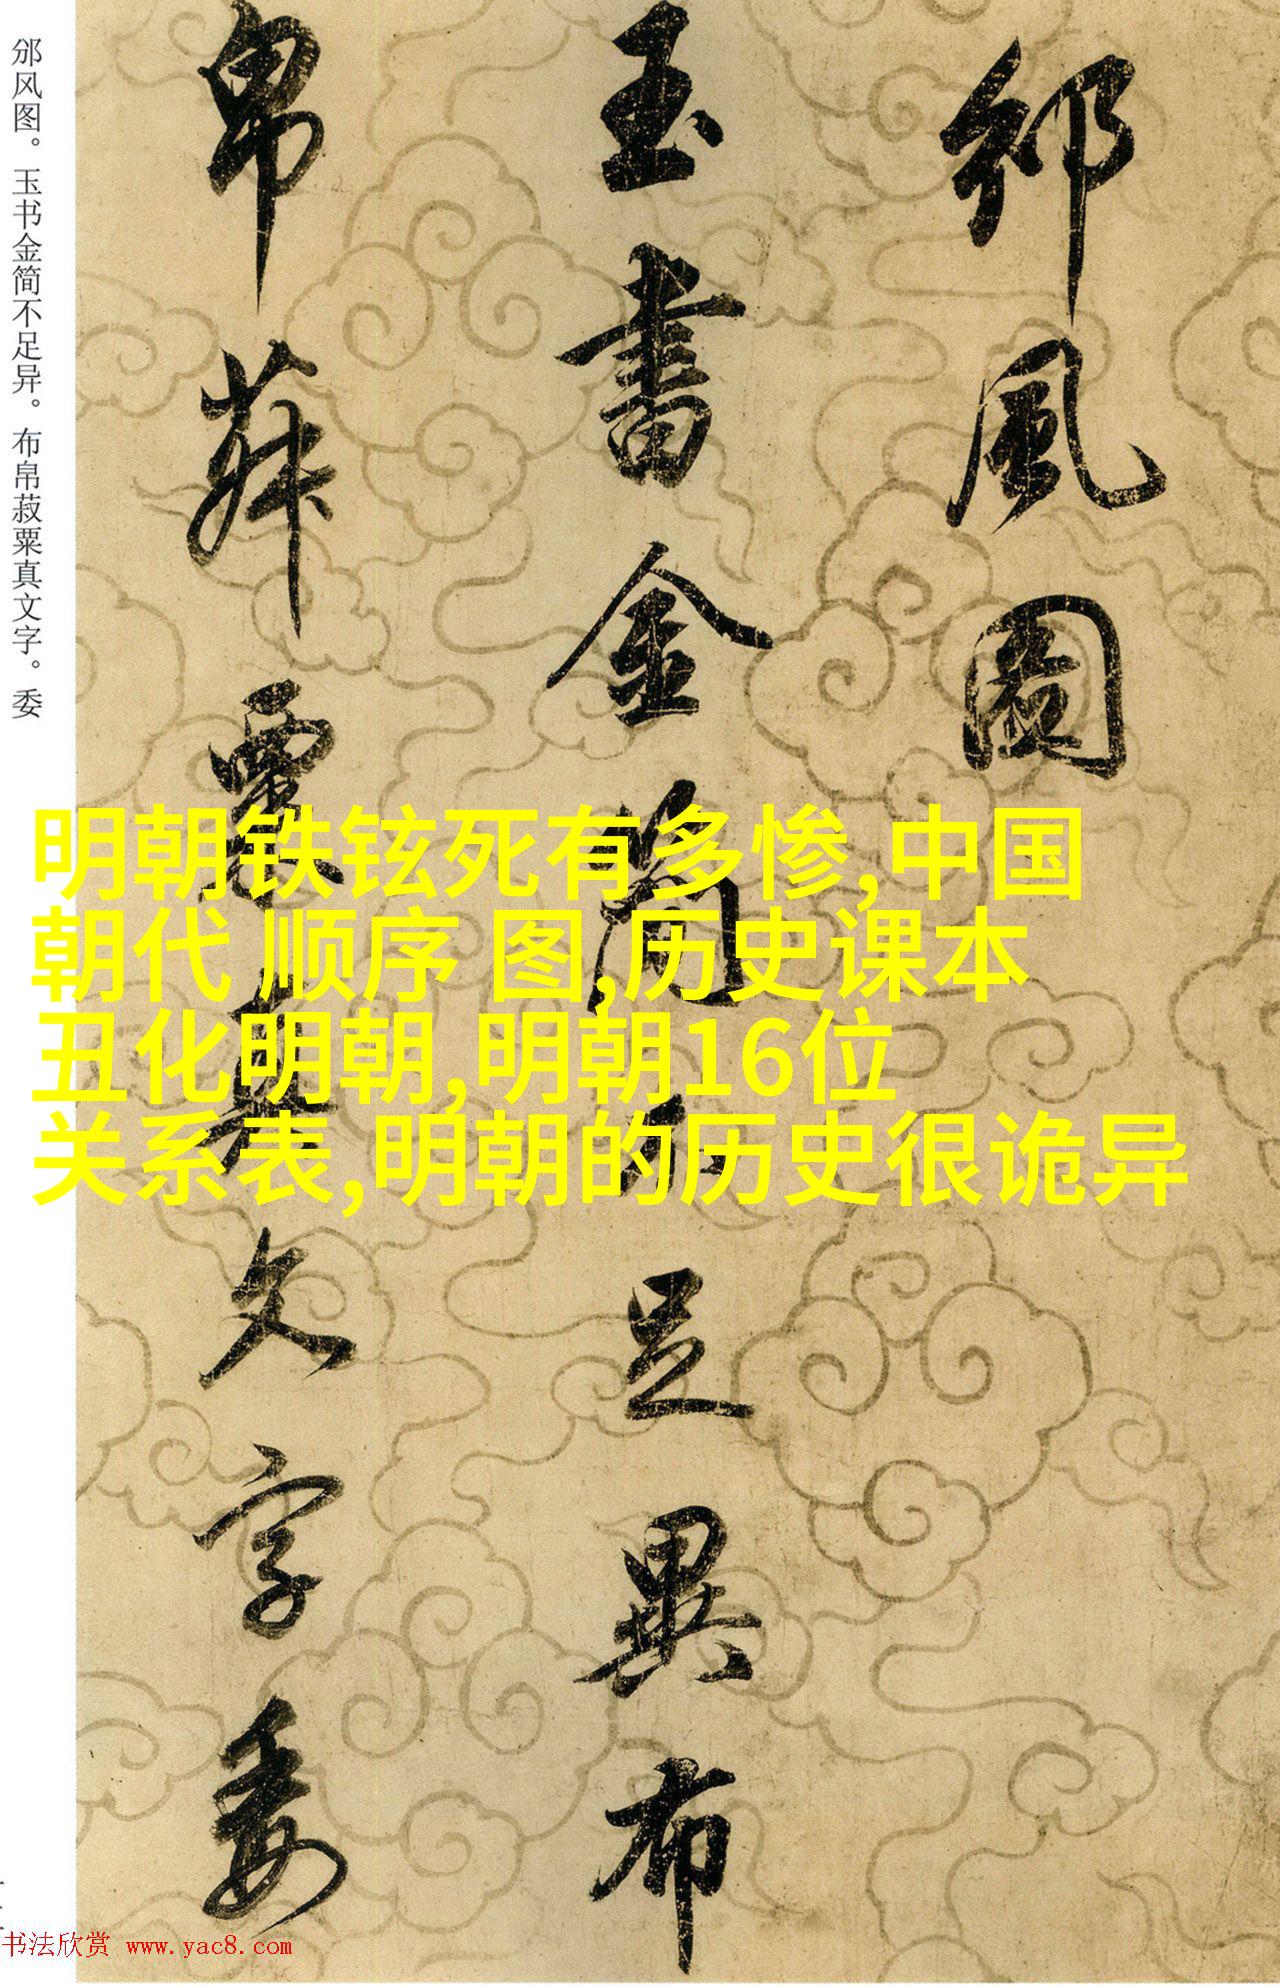 邠風圖
玉書金簡不足異布
帛菽粟真文字委
邠风图。玉书金简不足异。布帛菽粟真文字。委
明朝铁铉死有多惨,中国
朝代 顺序 图,历史课本
丑化明朝,明朝16位
关系表,明朝的历史很诡异
书法欣赏 www.yac8.com